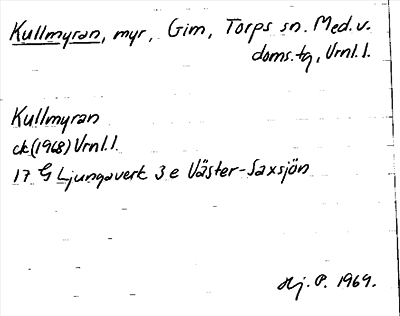 Kullmyran, myr, Gim, Torps sn. Med. v.
doms.tg, Vrnl.l.
Kullmyran
ck (1968) Vrnl.l.
17 G Ljungaverk 3 e Väster-Saxsjön
Hj. P. 1969.